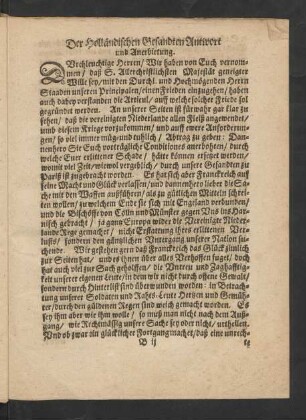 Der Holländischen Gesandten Antwort
und Anerbietung.
Durchleuchtige Herren; Wir haben von Euch vernom-
men / daß S. Allerchristlichsten Majestät geneigter
Wille sey / mit den Durchl. und Hochmögenden Herren
Staaden unseren Principalen / einen Frieden einzugehen / haben
auch dabey verstanden die Articul / auf welche solcher Friede sol
gegründet werden. An unserer Seiten ist für wahr gar klar zu
sehen / daß die vereinigten Niederlande allen Fleiß angewendet /
und diesem Kriege vorzukommen / und auff ewre Anforderun-
gen / so viel immer müglich und füßlich / Abtrag zu geben: Dan-
nenhero Sie Euch vorträgliche Conditiones anerbohten / durch
welche Euer erlittener Schade / hätte können ersetzet werden /
womit die Zeit / wiewol vergeblich / durch unsere Gesandten zu
Pariß ist zugebracht worden. Es hat sich aber Franckreich auf
seine Macht und Glück verlassen / und dannenhero lieber die Sa-
che mit den Waffen außführen / als zu gütlichen Mitteln schrei-
ten wollen / zu welchem Ende sie sich mit Engeland verbunden /
und die Bischöffe von Cölln und Münster gegen Uns ins Har-
nisch gebracht / ja gantz Europa wider die Vereinigte Niede-
lande Rege gemachet / nicht Erstattung ihres erlittenen Ver-
lusts / sondern den gänzlichen Untergang unserer Nation su-
chende. Wir gestehen gern daß Franckreich das Glück ziemlich
zur Seiten hat / und es ihnen über alles Verhoffen fuget / doch
hat auch viel zur Sach geholffen / die Untreu und Zaghafftig-
keit unserer eigenen Leute / in dem wir nicht durch offene Gewalt /
sondern durch Hinterlist sind überwunden worden: in Betrach-
tung unserer Soldaten und Rahts-Leute Hertzen und Gemüh-
ter / durch den güldenen Regen sind weich gemacht worden. Es
sey ihm aber wie ihm wolle / so muß man nicht nach dem Auß-
gang / wie Rechtmässig unsere Sache sey oder nicht / urtheilen.
Und ob zwar ein glücklicher Fortgang machet / daß eine unrech-
B ij
te